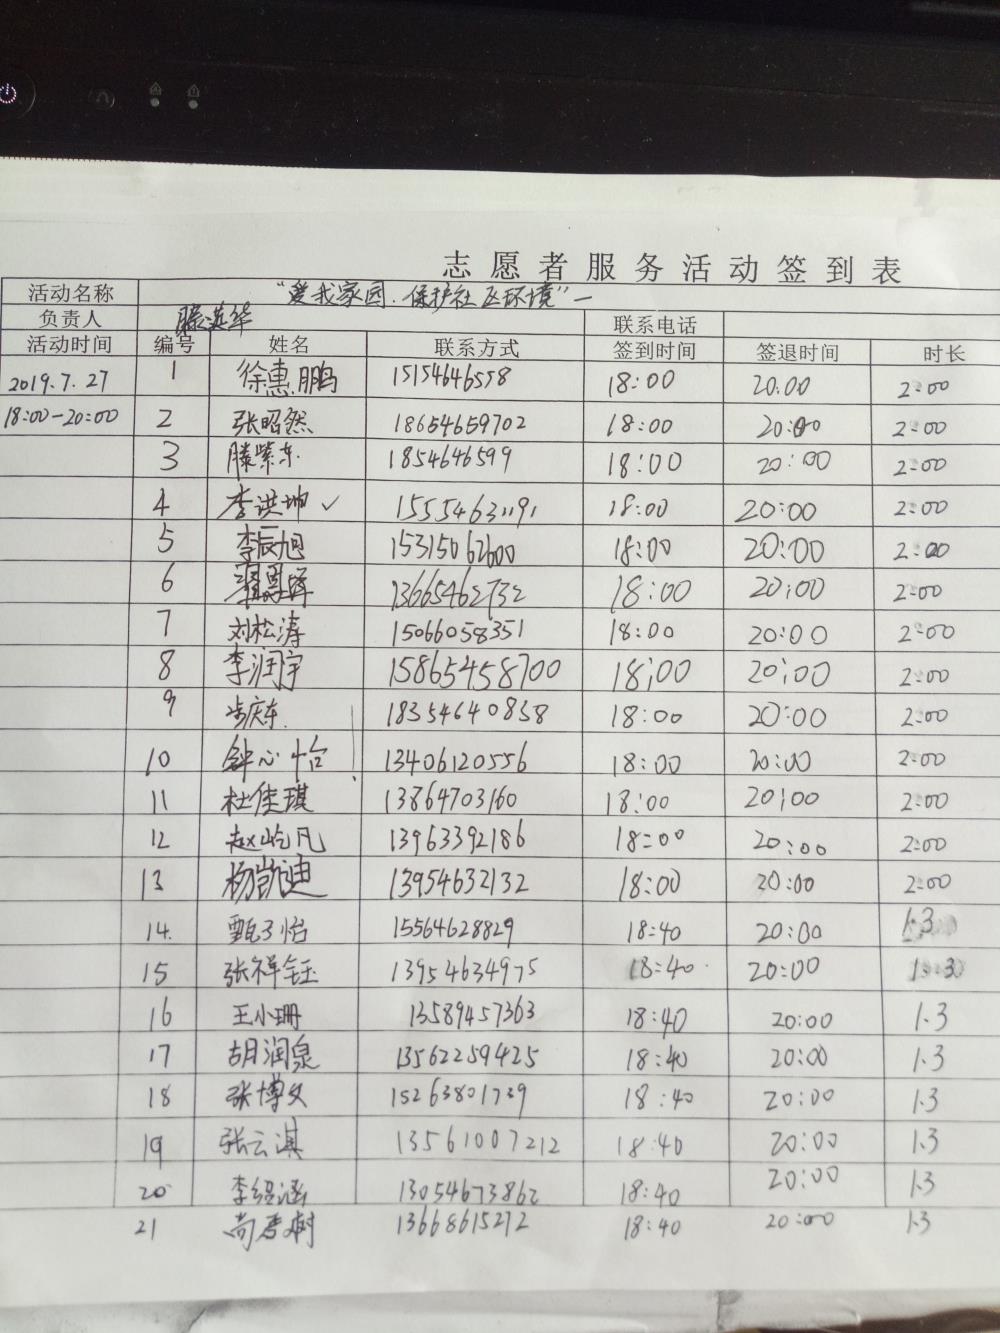 志愿者服务活动签到表
活动名称 "爱我家园.保护社区环境"一
负责人 滕洪华 联系电话
活动时间 编号 姓名 联系方式 签到时间 签退时间 时长
2019.7.27 1 徐惠鹏 15154646558 18:00 20:00 2:00
18:00-20:00 2 张昭然 18654659702 18:00 20:00 2:00
3 滕紫东 1854646599 18:00 20:00 2:00
4 李洪坤 ✓ 15554631191 18:00 20:00 2:00
5 李辰旭 15315062600 18:00 20:00 2:00
6 13665462732 18:00 20:00 2:00
7 刘松涛 15066058351 18:00 20:00 2:00
8 李润宇 15865458700 18:00 20:00 2:00
9 步庆东 18354640838 18:00 20:00 2:00
10 钟心怡 13406120556 18:00 20:00 2:00
11 杜佳琪 13864703160 18:00 20:00 2:00
12 赵屹凡 13963392186 18:00 20:00 2:00
13 杨凯迪 13954632132 18:00 20:00 2:00
14. 甄子怡 15564628829 18:40 20:00 1.3
15 张祥钰 13954634975 18:40 20:00 1.3
16 王小珊 13589457363 18:40 20:00 1.3
17 胡润泉 13562259425 18:40 20:00 1.3
18 张博文 15263801739 18:40 20:00 1.3
19 张云淇 13561007212 18:40 20:00 1.3
20 李绍涵 13054673862 18:40 20:00 1.3
21 尚彦树 13668615272 18:40 20:00 1.3